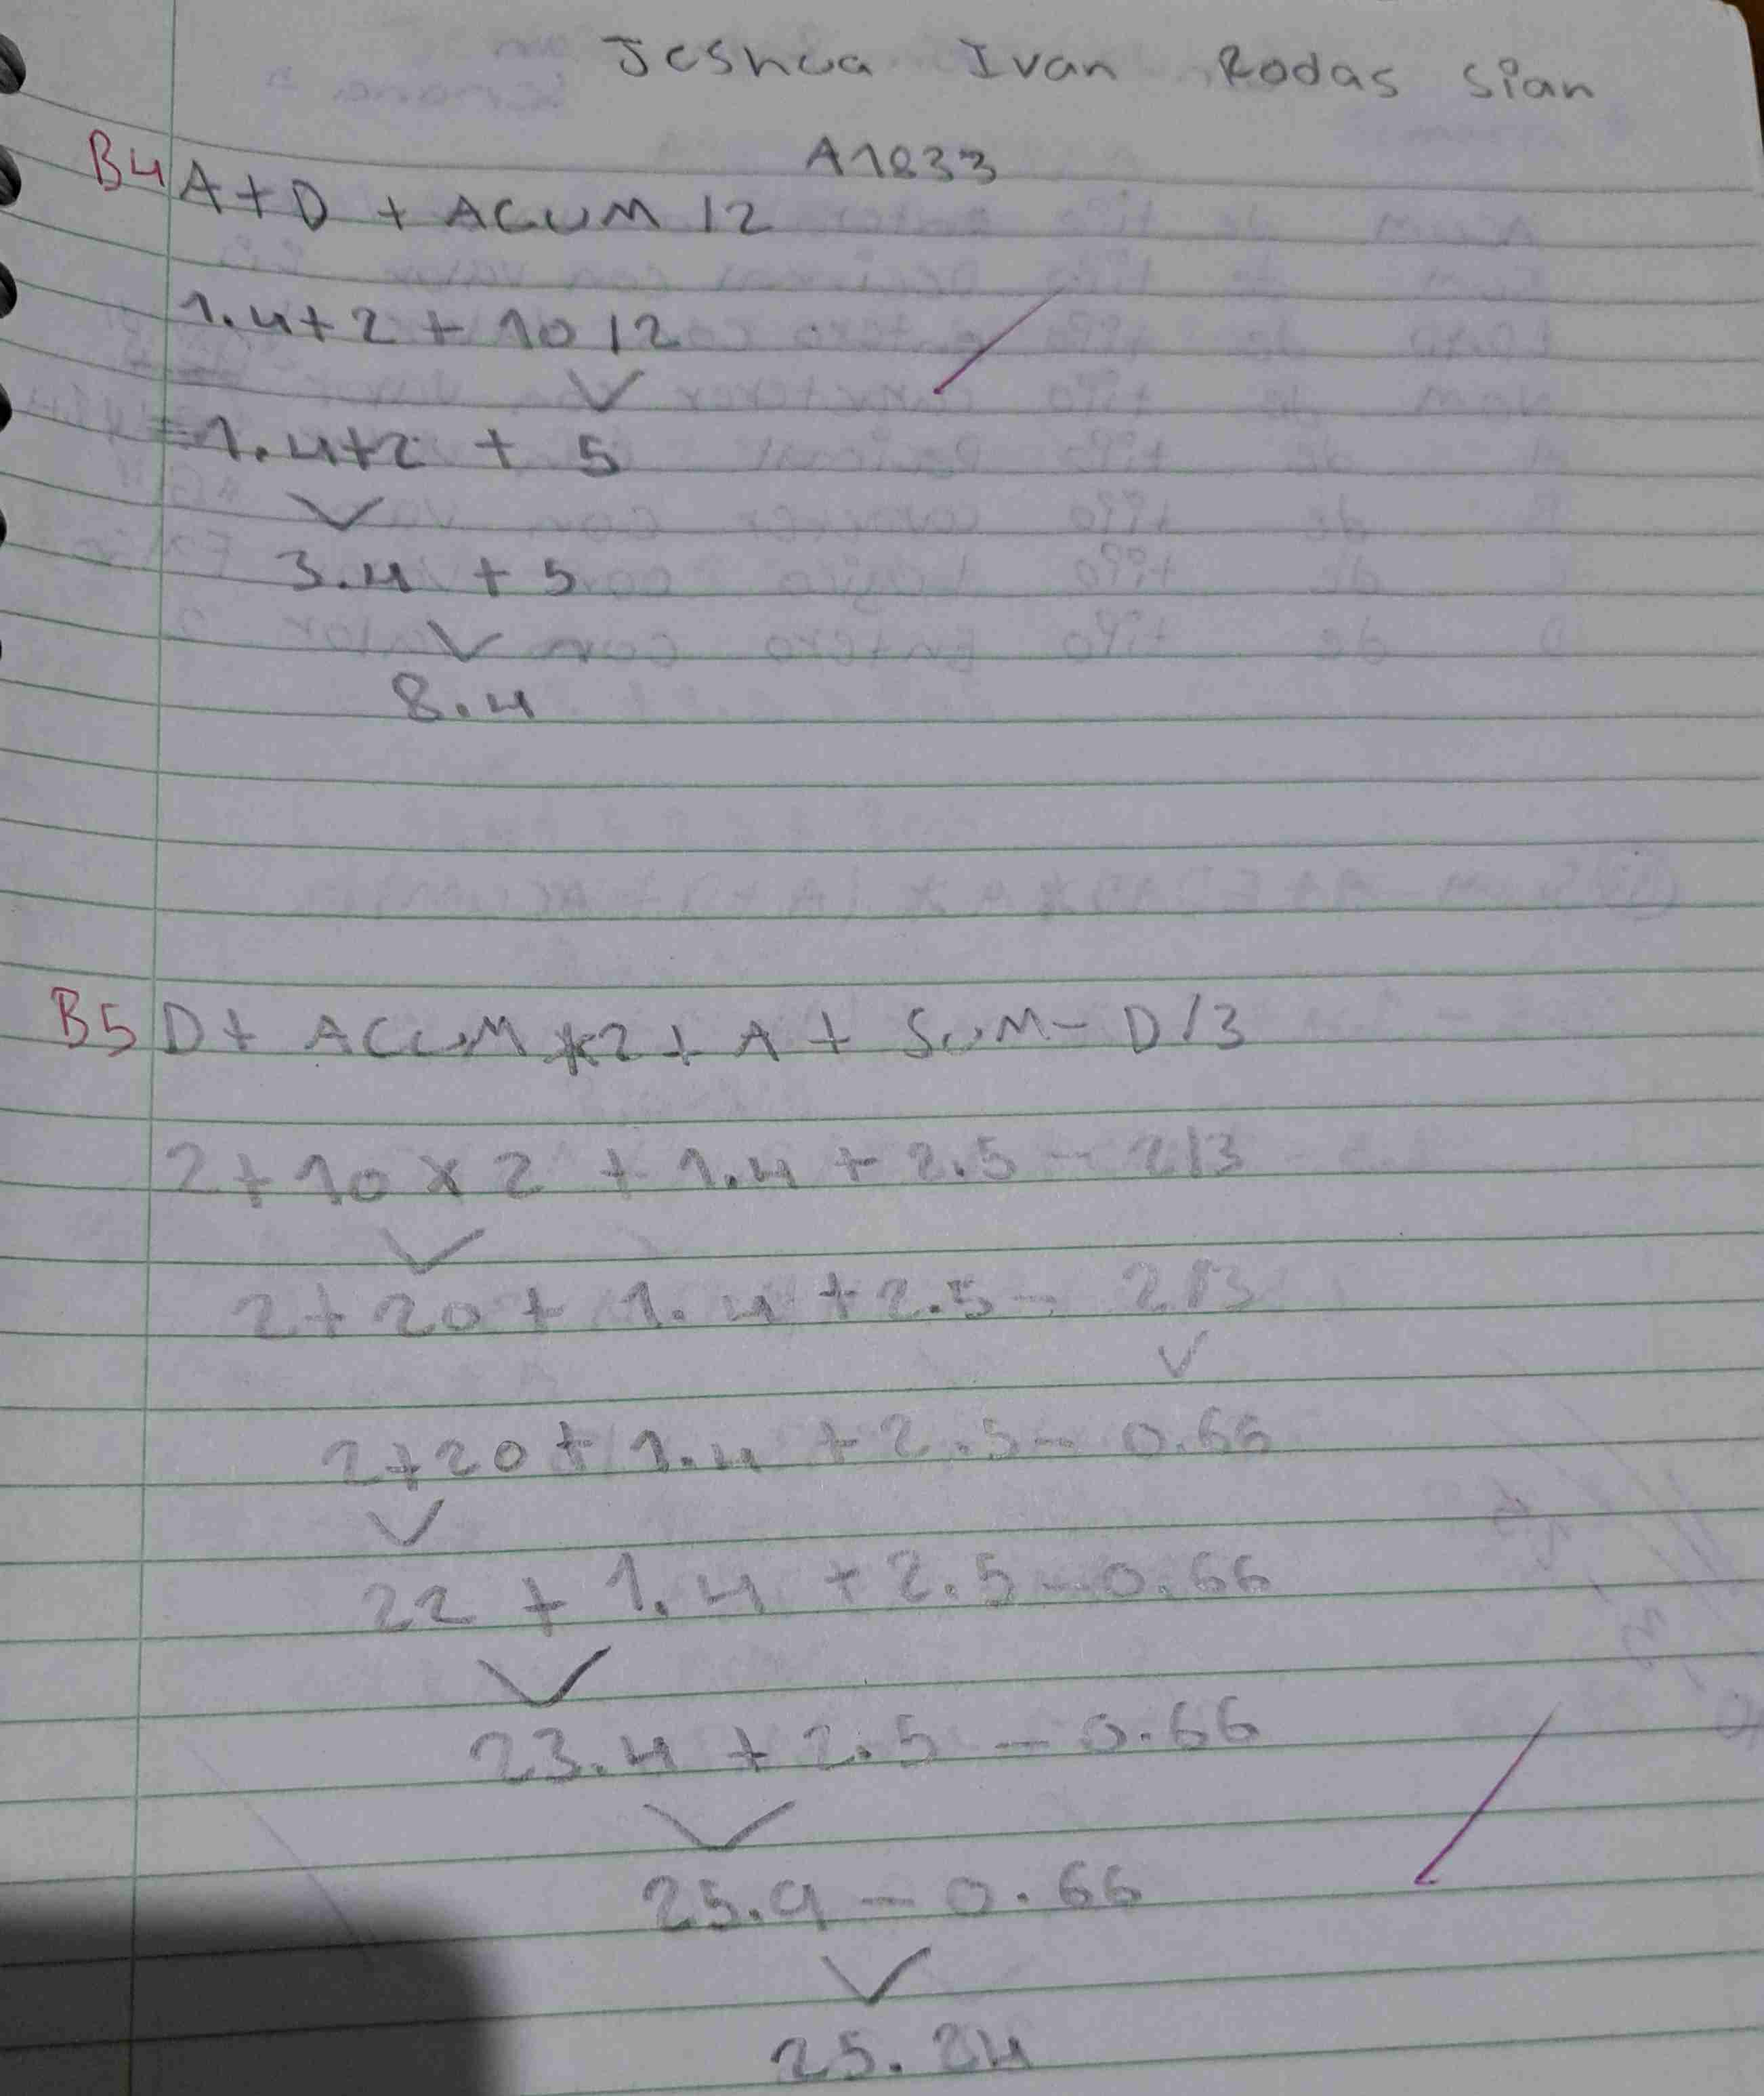 Jeshua Ivan Rodas Sian
A1833
B4 A+D + ACUM / 2
1.4+2 + 10 / 2
=1.4+2 + 5
3.4 + 5
8.4
B5 D+ ACUM *2 + A + SUM - D/3
2+10 x 2 + 1.4 + 2.5 - 2/3
2+20 + 1.4 + 2.5 - 2/3
2+20 + 1.4 + 2.5 - 0.66
22 + 1.4 + 2.5 - 0.66
23.4 + 2.5 - 0.66
25.9 - 0.66
25.24